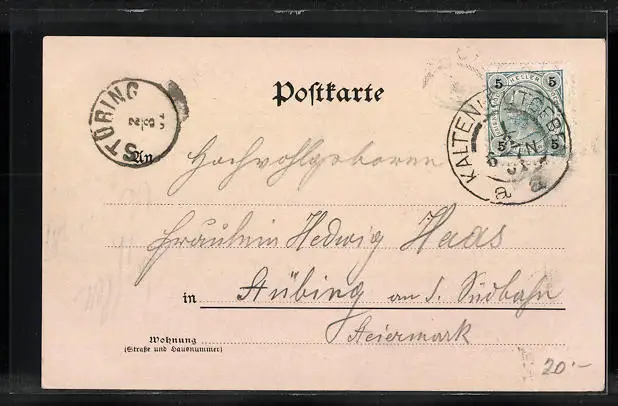 Postkarte
5 HELLER 5
5 5
STÜBING
KALTENLEUTGEBEN
a a
An Hochwohlgeboren
Fräulein Hedwig Haas
in Stübing an d. Südbahn
Steiermark
Wohnung
(Straße und Hausnummer)
20.-